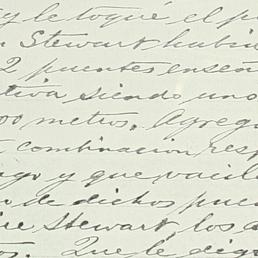 y le toqué el p
n Stewart habia
2 puentes enseñ
tiva siendo uno
00 metros. Agreg
combinacion, resp
ago y que vacil
n de dichos pue
re Stewart, los a
os. Que le dig